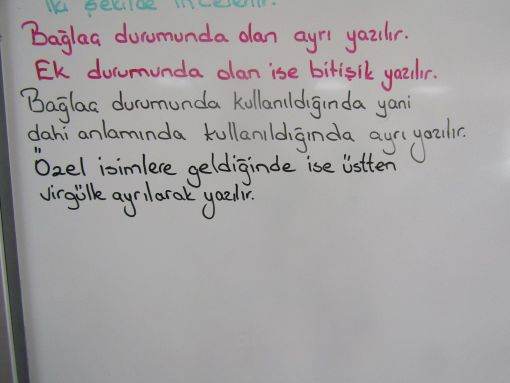 iki şekilde incelenir.
Bağlaç durumunda olan ayrı yazılır.
Ek durumunda olan ise bitişik yazılır.
Bağlaç durumunda kullanıldığında yani
dahi anlamında kullanıldığında ayrı yazılır.
Özel isimlere geldiğinde ise üstten
virgülle ayrılarak yazılır.